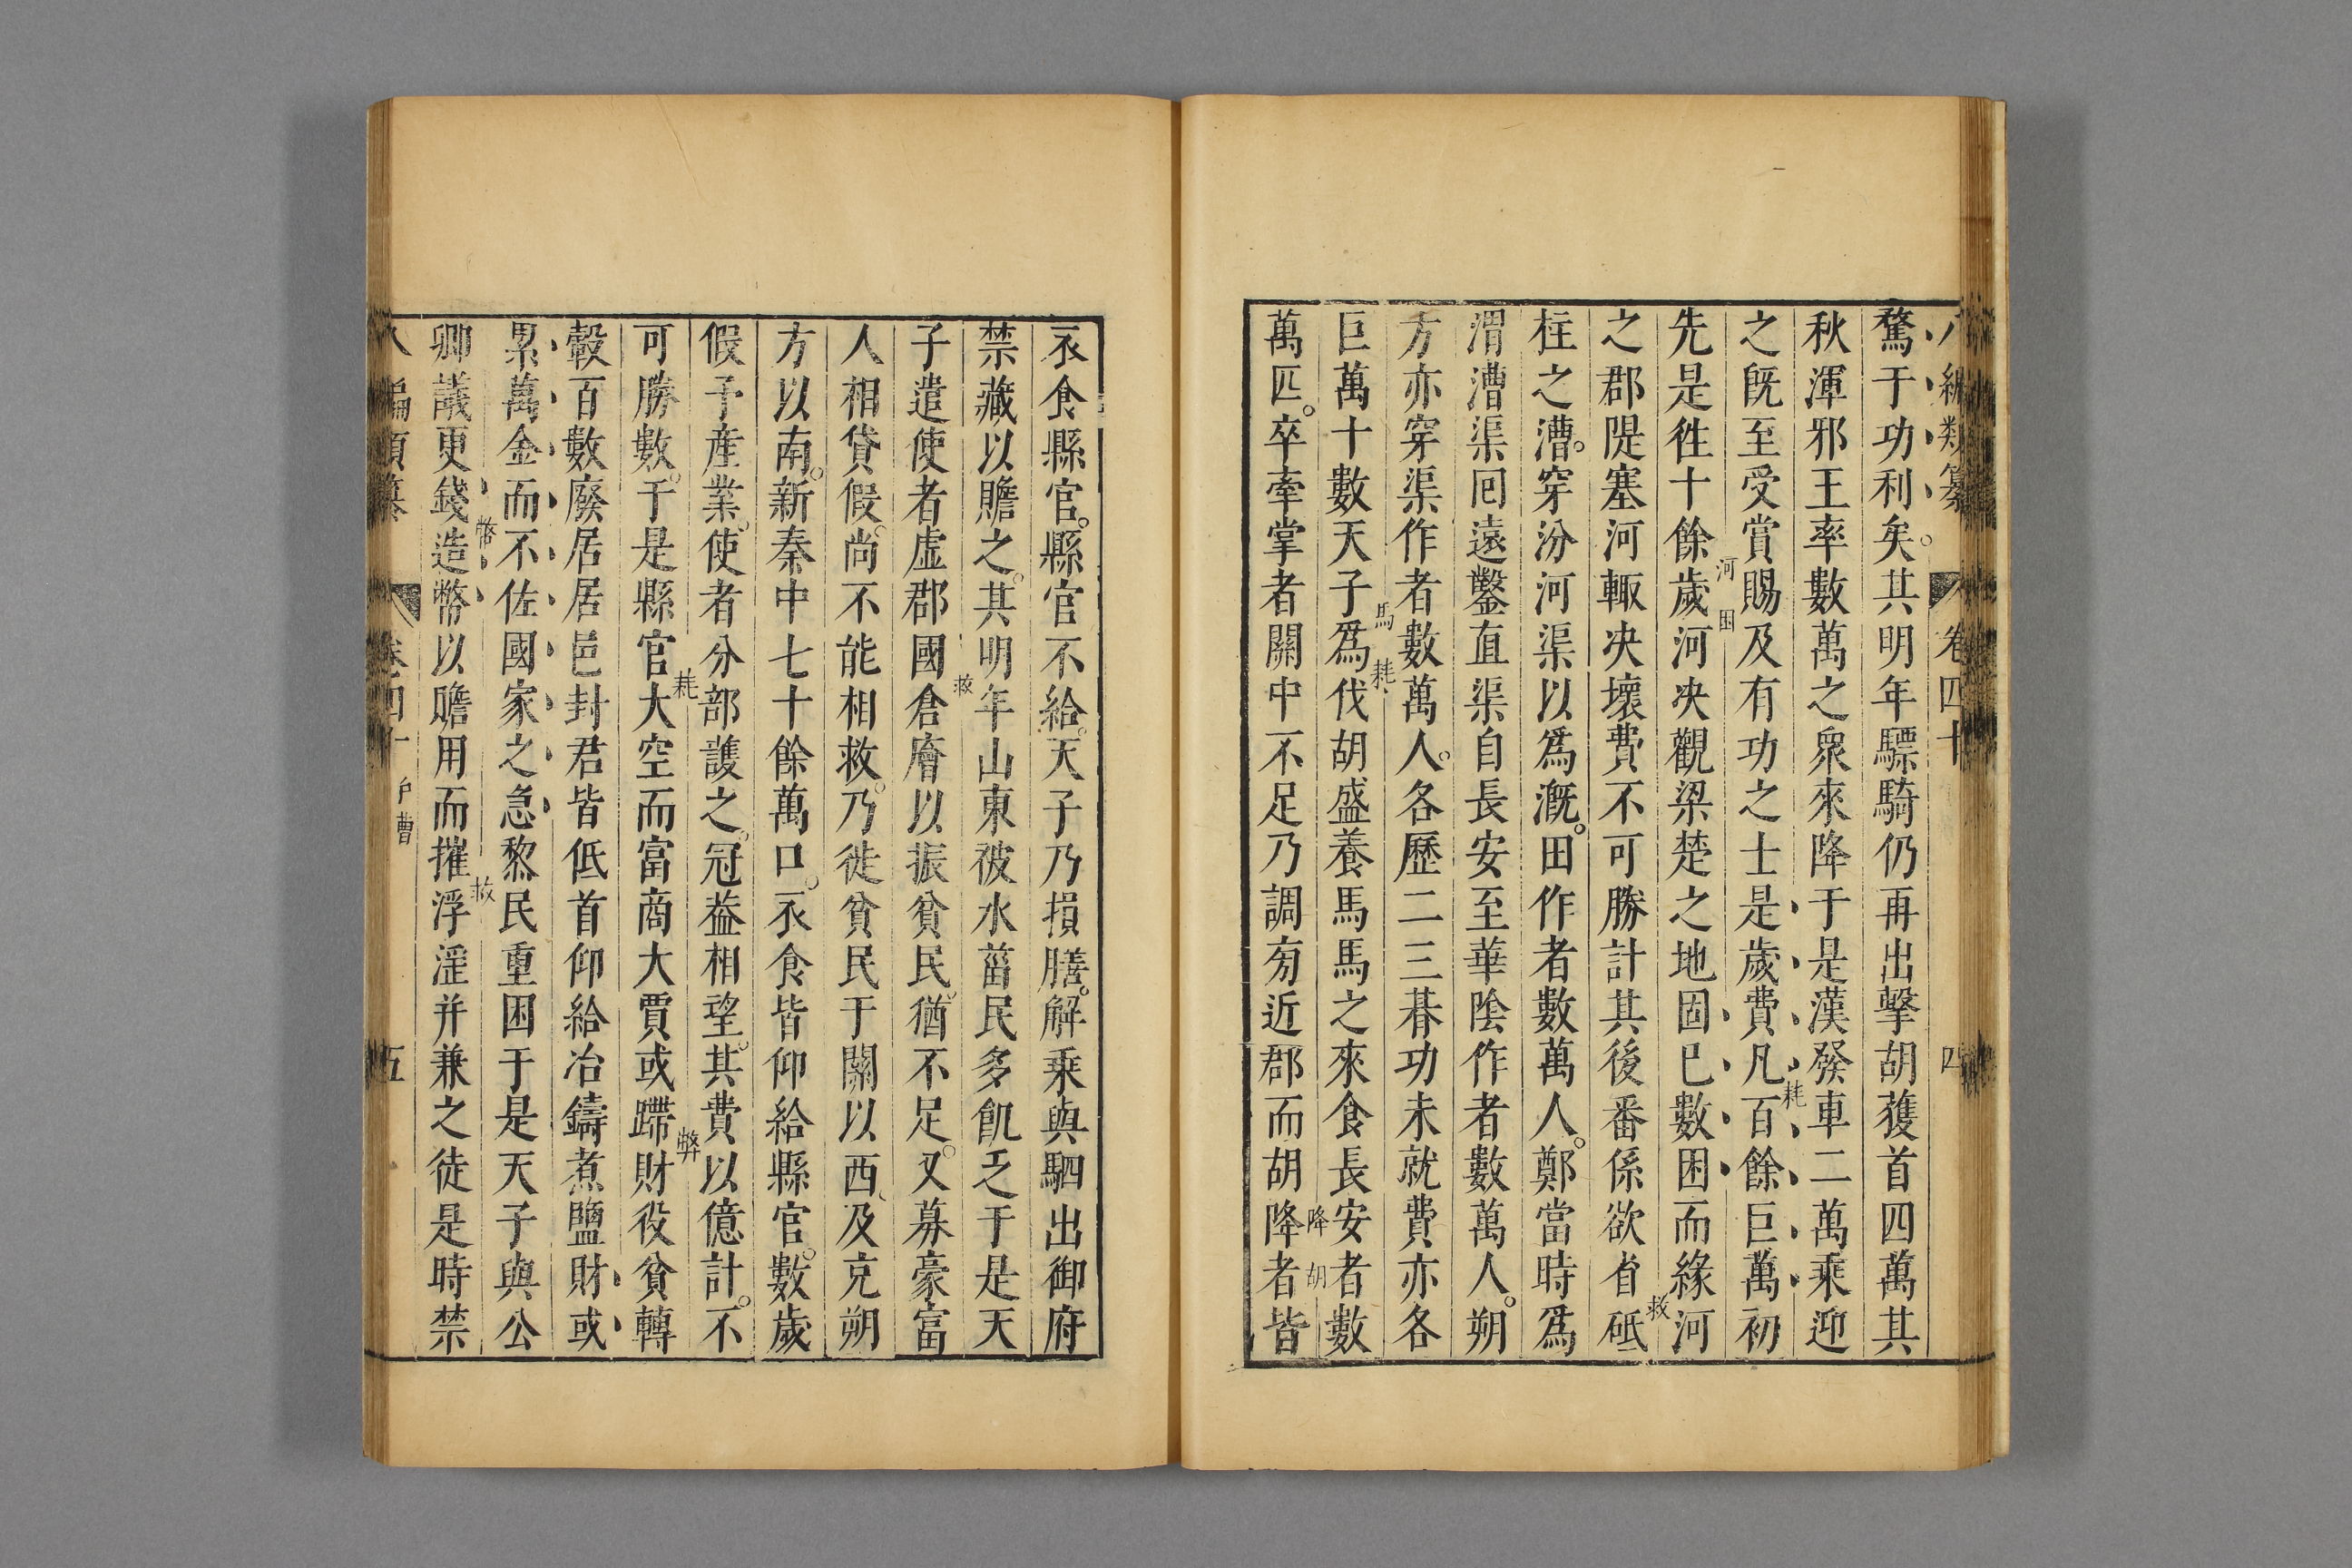 八編類纂 卷四十 四
騖于功利矣。其明年驃騎仍再出擊胡獲首四萬其
秋渾邪王率數萬之衆來降于是漢發車二萬乘迎
耗
之旣至受賞賜及有功之士是歲費凡百餘巨萬初
河困
先是徃十餘歲河决觀梁楚之地固已數困而緣河
救
之郡隄塞河輙决壞費不可勝計其後番係欲省砥
柱之漕。穿汾河渠以爲漑。田作者數萬人。鄭當時爲
渭漕渠囘遠鑿直渠自長安至華陰作者數萬人。朔
方亦穿渠作者數萬人。各歷二三朞功未就費亦各
馬耗
巨萬十數天子爲伐胡盛養馬馬之來食長安者數
降胡
萬匹。卒牽掌者關中不足乃調旁近郡而胡降者皆
衣食縣官。縣官不給。天子乃損膳。解乘輿駟出御府
禁藏以贍之。其明年山東被水菑民多飢乏于是天
救
子遣使者虛郡國倉廥以振貧民。猶不足。又募豪富
人相貸假。尚不能相救。乃徙貧民于關以西、及充朔
方以南。新秦中七十餘萬口。衣食皆仰給縣官。數歲
假予產業。使者分部護之。冠葢相望。其費以億計。不
耗 弊
可勝數。于是縣官大空而富商大賈或蹛財役貧轉
轂百數廢居居邑封君皆低首仰給冶鑄煮鹽財或
累萬金而不佐國家之急黎民重困于是天子與公
幣 救
卿議更錢造幣以贍用而摧浮淫并兼之徒是時禁
八編類纂 卷四十 戶曹 五